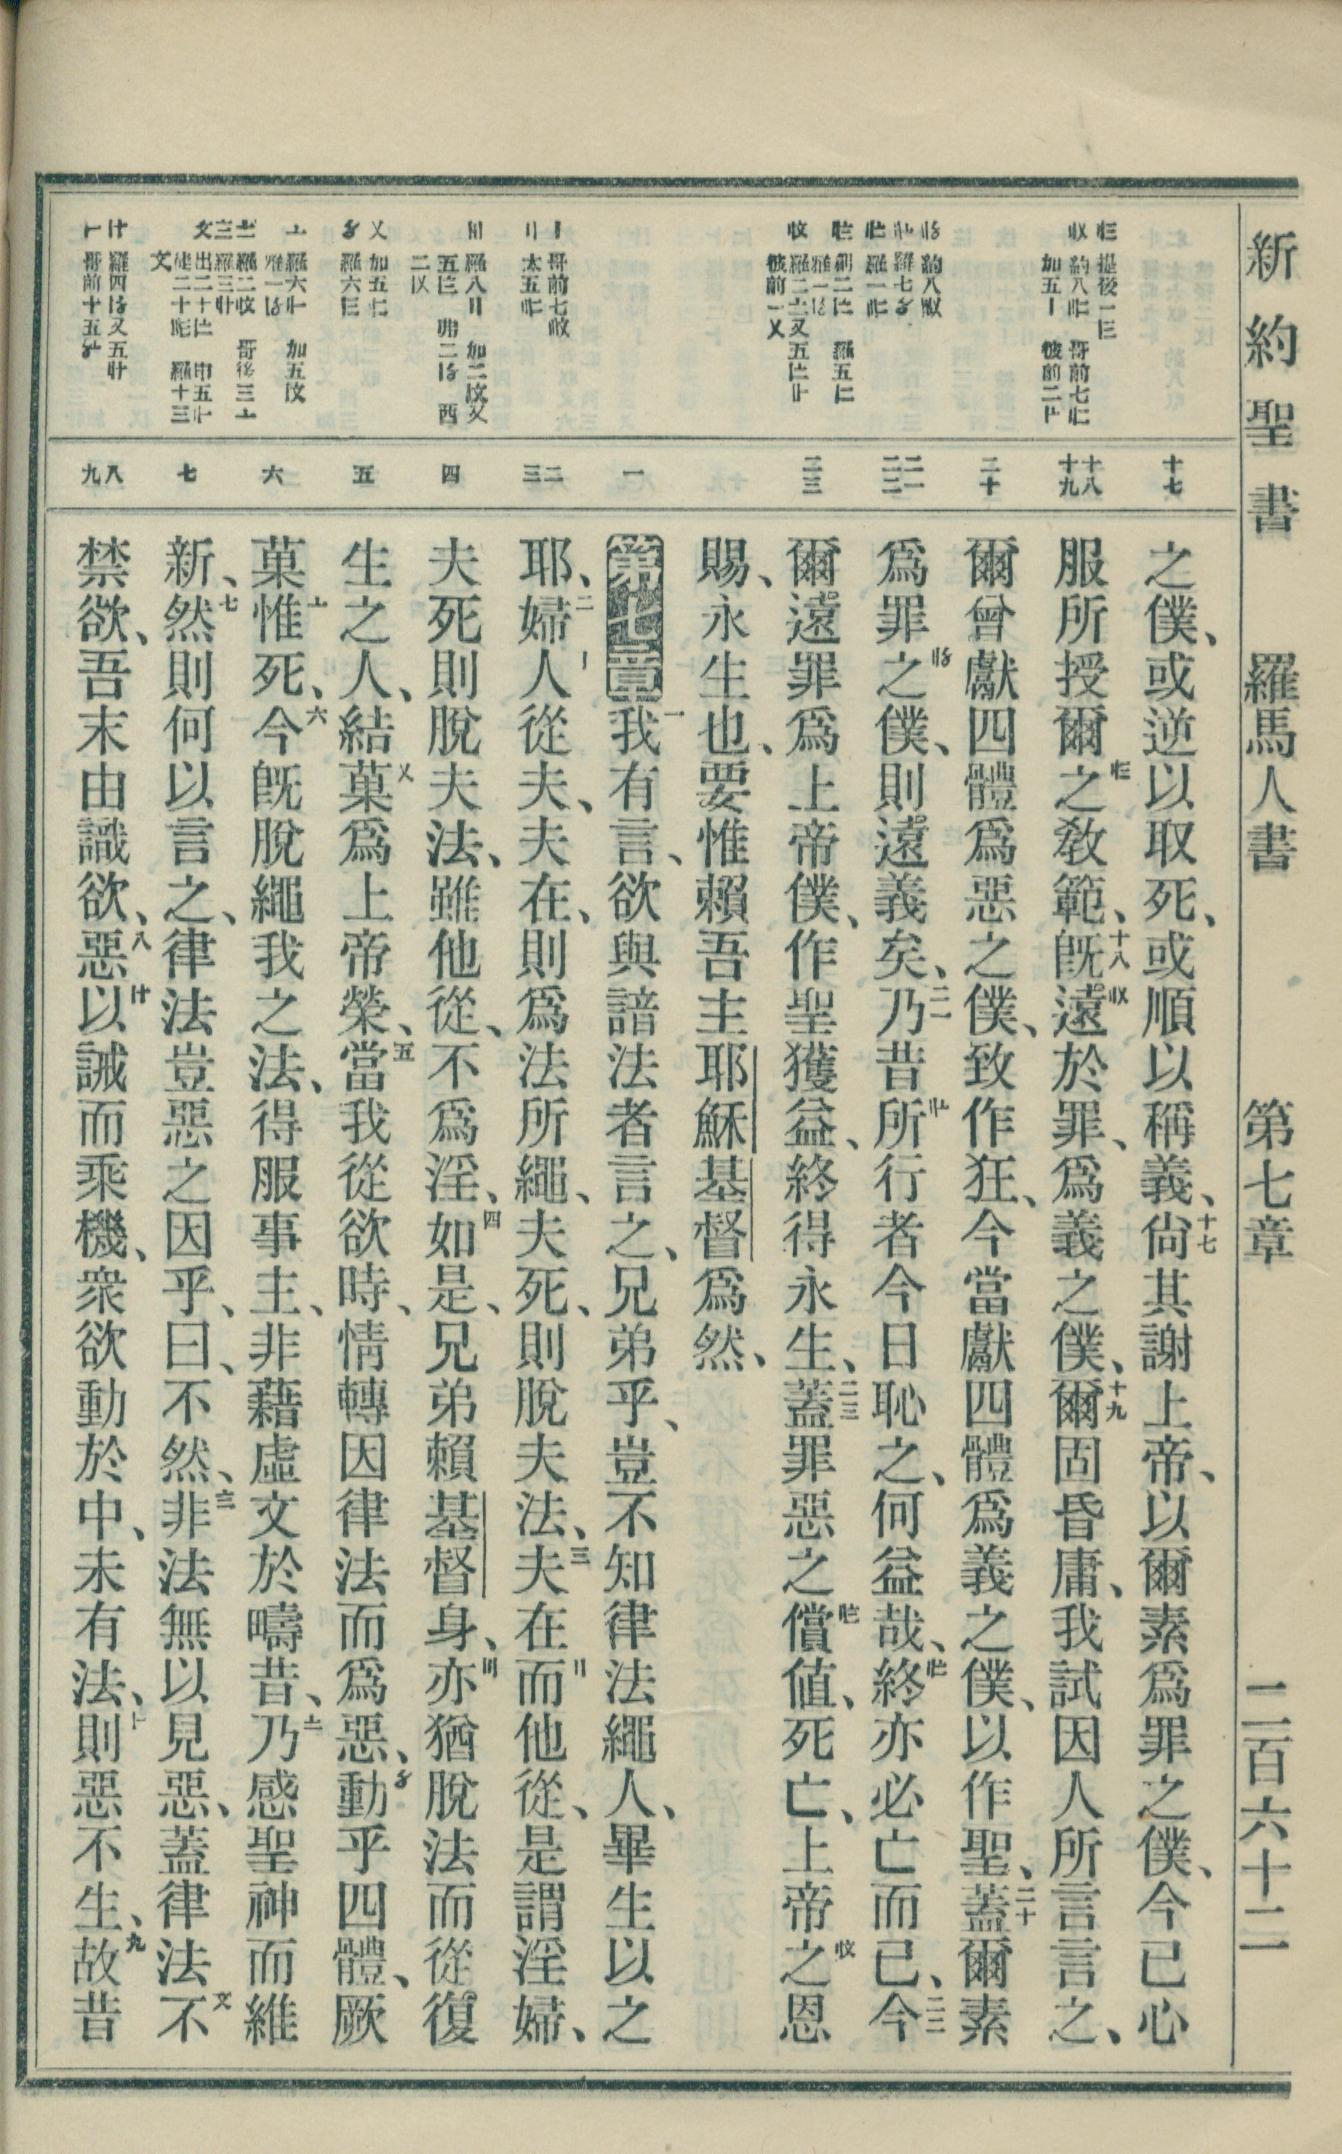 新約聖書 羅馬人書 第七章 二百六十二
十七
十八
十九
二十
二一
二二
二三
一
二
三
四
五
六
七
八
九
之僕、或逆以取死、或順以稱義、十七尙其謝上帝、以爾素爲罪之僕、今已心
服所授爾之敎範、十八旣遠於罪、爲義之僕、十九爾固昏庸、我試因人所言言之、
爾曾獻四體爲惡之僕、致作狂、今當獻四體爲義之僕、以作聖、二十蓋爾素
爲罪之僕、則遠義矣、二一乃昔所行者今日恥之、何益哉、終亦必亡而已、二二今
爾遠罪爲上帝僕、作聖獲益、終得永生、二三蓋罪惡之償値、死亡、上帝之恩
賜、永生也、要惟賴吾主耶穌基督爲然、
第七章 一我有言、欲與諳法者言之、兄弟乎、豈不知律法繩人、畢生以之
耶、二婦人從夫、夫在、則爲法所繩、夫死、則脫夫法、三夫在而他從、是謂淫婦、
夫死則脫夫法、雖他從、不爲淫、四如是、兄弟賴基督身、亦猶脫法而從復
生之人、結菓爲上帝榮、五當我從欲時、情轉因律法而爲惡、動乎四體、厥
菓惟死、六今旣脫繩我之法、得服事主、非藉虛文於疇昔、乃感聖神而維
新、七然則何以言之、律法豈惡之因乎、曰、不然、非法無以見惡、蓋律法不
禁欲、吾末由識欲、八惡以誡而乘機、衆欲動於中、未有法、則惡不生、九故昔